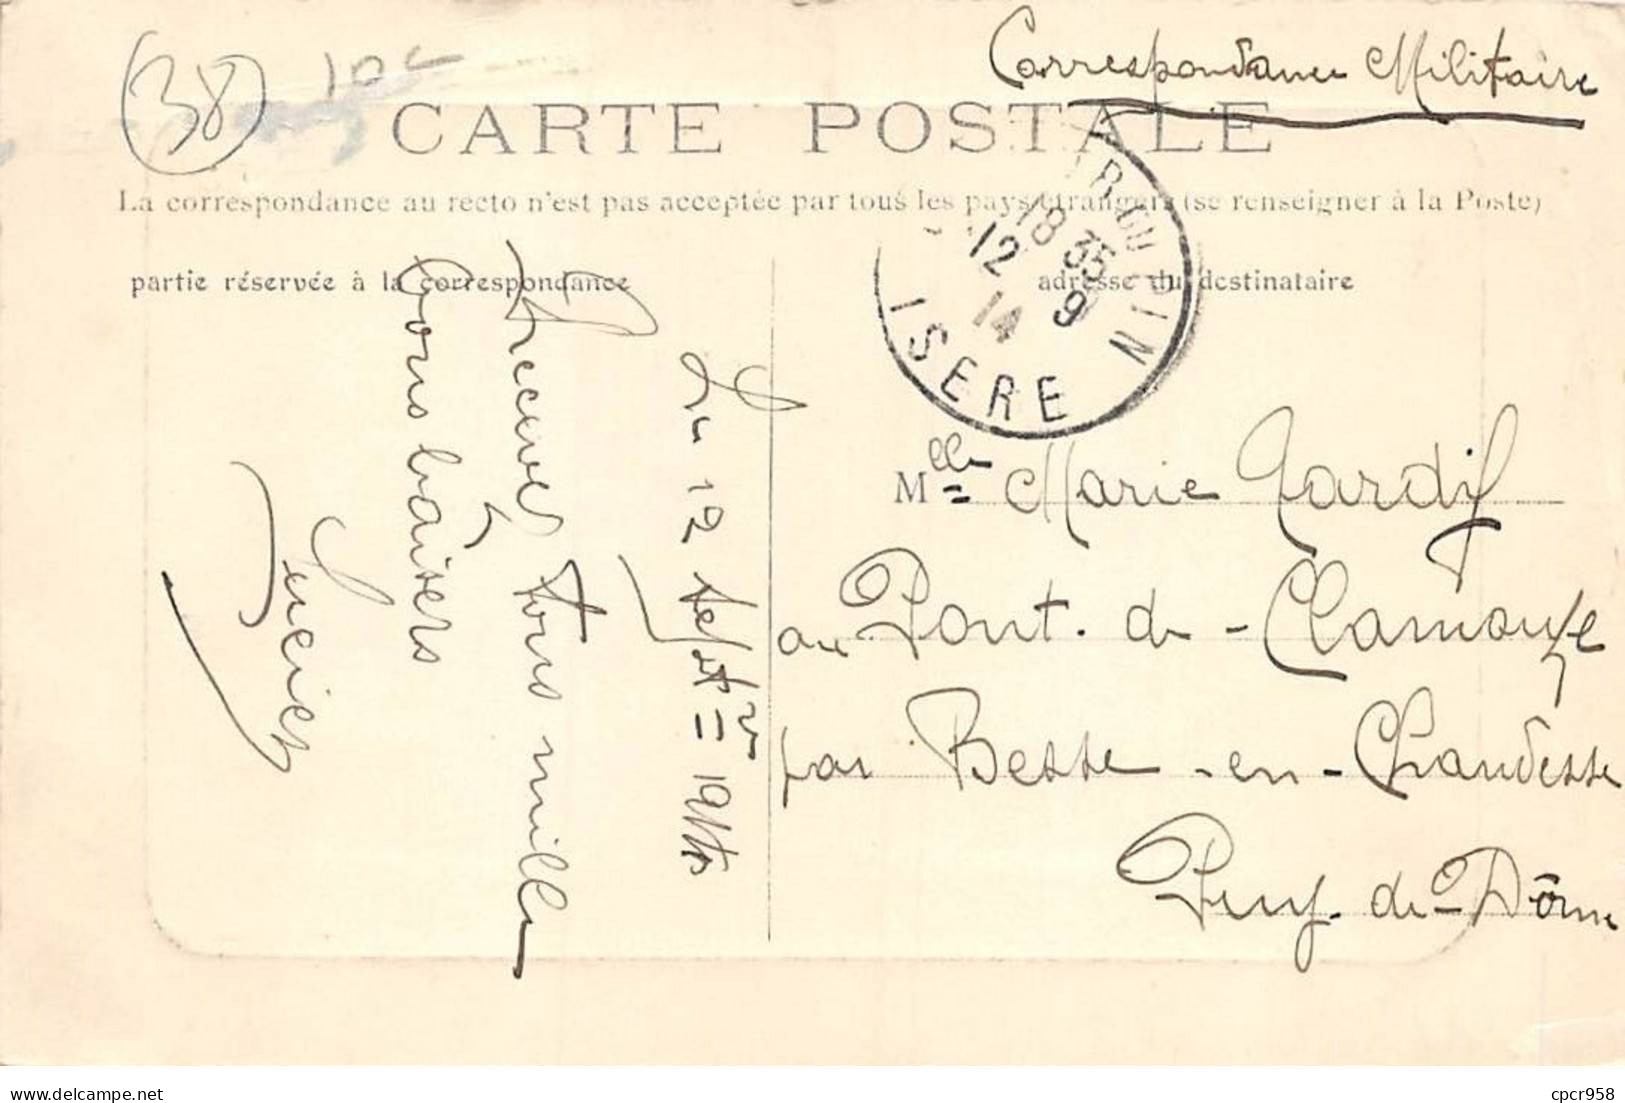 Correspondance Militaire
38
10
CARTE POSTALE
La correspondance au recto n'est pas acceptée par tous les pays étrangers (se renseigner à la Poste)
partie réservée à la correspondance
adresse du destinataire
18 35
12 9
14
ISERE
Le 12 Septre 1914
Recevez tous mille
bons baisers
Lucien
Melle Marie Tardif
au Pont-de-Clamouze
par Besse-en-Chandesse
Puy-de-Dôme
cpcr958